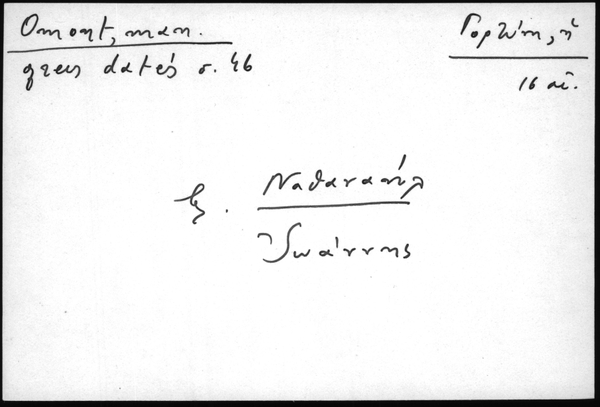 Omont, man.
grecs datés σ. 46
Γορτύνη, ἡ
16 αἰ.
Ναθαναήλ
Ἰωάννης